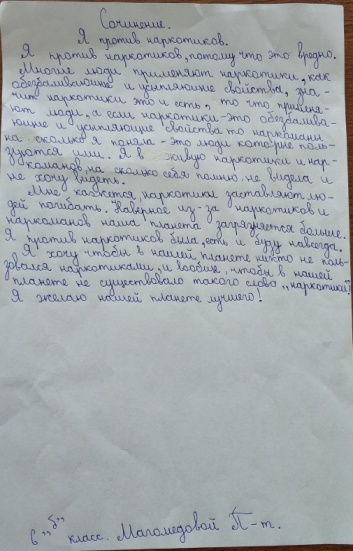 Сочинение.
Я против наркотиков.
Я против наркотиков, потому что это вредно.
Многие люди применяют наркотики, как
обезбаливающие и усипляюшие свойства, зна-
чит наркотики это и есть, то что применя-
ют люди, а если наркотики - это обезбалива-
ющие и усипляющие свойства то наркоманы
на сколько я поняла - это люди которые поль-
зуются ими. Я в живую наркотики и нар-
команов, на сколько себя помню, не видела и
не хочу видеть.
Мне кажется, наркотики заставляют лю-
дей погибать. Наверное из-за наркотиков и
наркоманов наша планета загрязняется больше.
Я против наркотиков была, есть и буду навсегда.
Я хочу чтобы в нашей планете никто не поль-
зовался наркотиками, и вообще, чтобы в нашей
планете не существовало такого слова „наркотики"!
Я желаю нашей планете лучшего!
6 „б" класс. Магомедовой П-т.